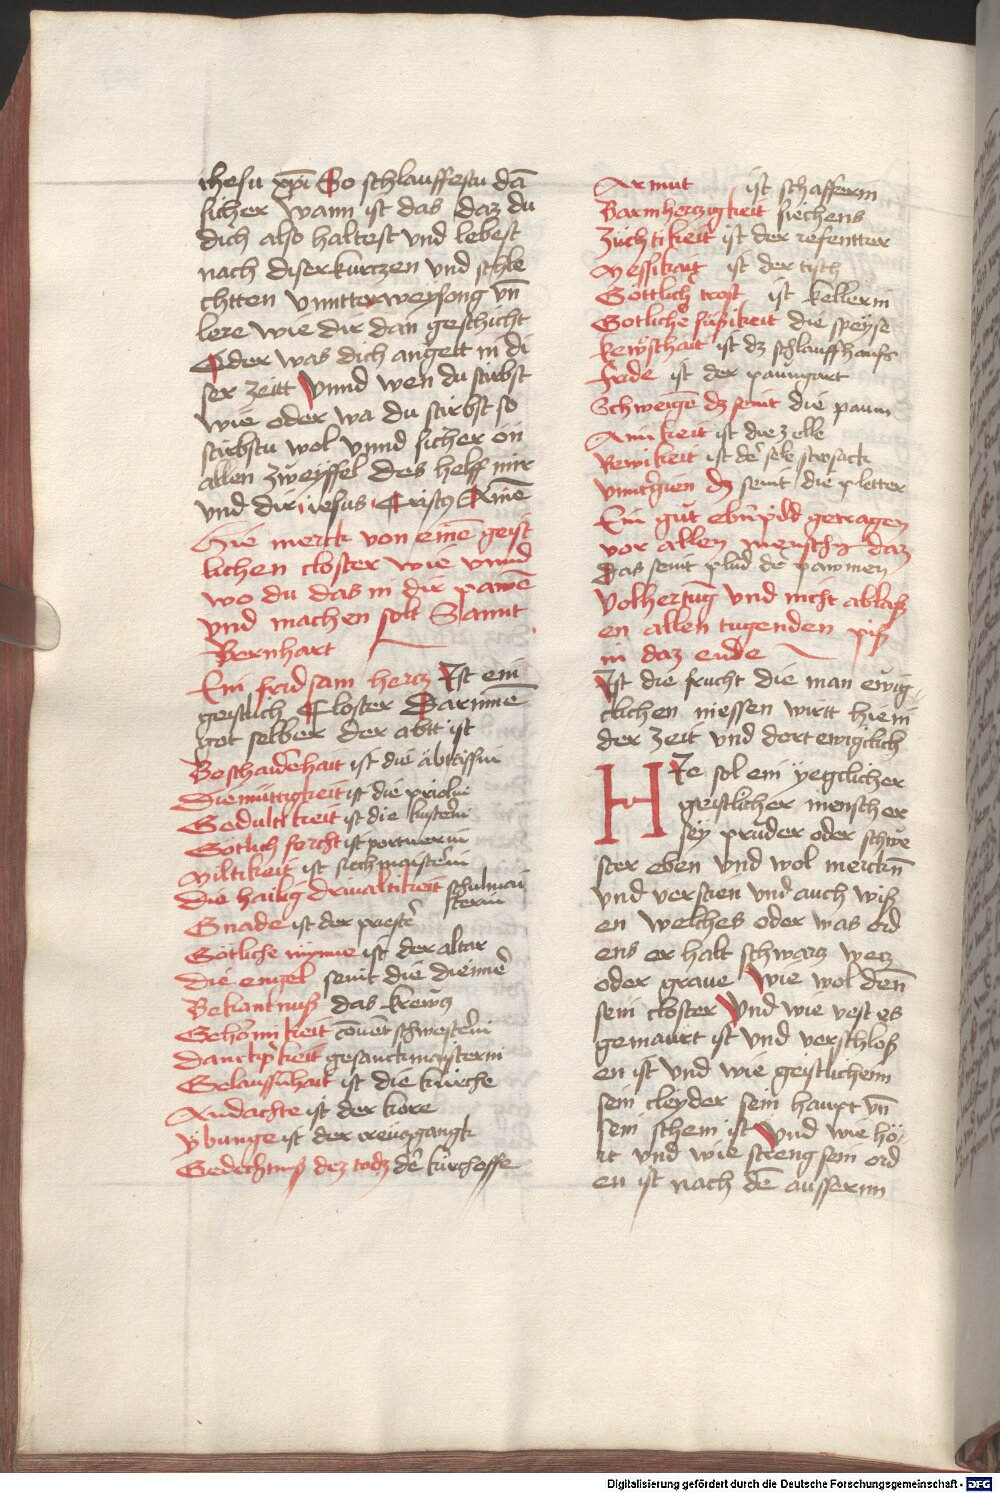 ihesu xpi So schlauffestu dā
sicher wann ist das daz du
dich also haltest vnd lebest
nach diser kurczen vnd schle
chtten vnntterweysong vn̄
lere wie dir dan geschicht
Oder was dich angett in di
ser zeitt Vnnd wen du stirbst
wie oder wa du stirbst so
stirbstu wol vnnd sicher on
allen zweyffel des helff mir
vnd dir ihesus Cristus Amē
Hie merck von einē geist
lichen closter wie vnnd
wo du das in dir pawē
vnd machen solt Sannt
Bernhart
Ein fridsam hercz Ist ein
geistlich Closter Darinnē
got selber der abtt ist
Beschaidēhait ist die äbttissin
Diemüttigkeit ist die priolin
Gedultikeit ist die kusterin
Götlich forcht ist portnerin
Miltikeit ist siechmaisterin
Die hailig driualtikeit schulmai
sterin
Gnade ist der priestr̄
Götliche mynne ist der altar
Die engel seint die diennē
Bekantnuß das krewcz
Gehorsmikeit cōuēt schwesterin
Danckpkeit gesanckmaysterin
Gelaussēhait ist die kirche
Andachte ist der kore
Ybunge ist der creuczgangk
Gedechtnuß dez todz dē kirchoffe
Armut ist schafferin
Barmherczigkeit siechens
Züchtikeit ist der refentter
Messikait ist der tisch
Gottlich trost ist kellerin
Gotliche süßikeit die speyse
kewschait ist dz schlauffhauß
fride ist der paumgart
Schweigē dz seint die paum
Ainikeit ist die zelle
Rewikeit ist dē sele strosack
vmtrguen dz seint die pletter
Ein gut ebnpild getragen
vor allen menschen daz
Das seint plud dē pawmen
Volhertung vnd nicht ablaß
en allen tugenden piß
in daz ende
Ist die frucht die man ewig
clichen niessen wirtt hie in
der zeit vnd dort ewigclich
Hie sol ein yegclicher
geistlicher mensch er
sey pruder oder schwe
ster eben vnd wol merckn̄
vnd versten vnd auch wiß
en welches oder was ord
ens er halt schwarz weiz
oder grawe Wie wol den̄
sein closter Vnd wie vest es
gemaurt ist vnd verschloß
en ist vnd wie geistlichenn
sein cleyder sein haupt vn̄
sein schein ist Vnd wie hö
rt vnd wie streng sein ord
en ist nach dē aussernn
Digitalisierung gefördert durch die Deutsche Forschungsgemeinschaft - DFG